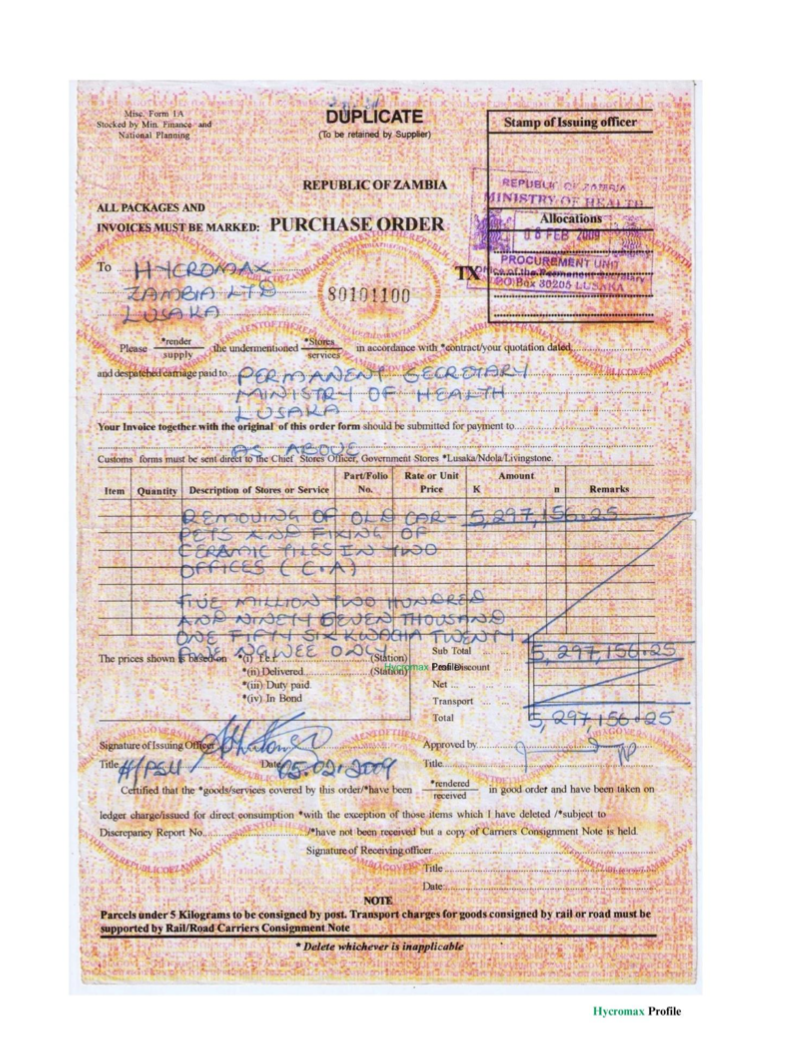 Misc. Form 1A
Stocked by Min. Finance and
National Planning
DUPLICATE
(To be retained by Supplier)
Stamp of Issuing officer
REPUBLIC OF ZAMBIA
ALL PACKAGES AND
INVOICES MUST BE MARKED: PURCHASE ORDER
REPUBLIC OF ZAMBIA
MINISTRY OF HEALTH
Allocations
06 FEB 2009
PROCUREMENT UNIT
Office of the Permanent Secretary
P.O. Box 30205 LUSAKA
To HYCROMAX
ZAMBIA LTD
LUSAKA
80101100
TX
Please *render supply the undermentioned *Stores services in accordance with *contract/your quotation dated
and despatched carriage paid to PERMANENT SECRETARY
MINISTRY OF HEALTH
LUSAKA
Your Invoice together with the original of this order form should be submitted for payment to
AS ABOVE
Customs forms must be sent direct to the Chief Stores Officer, Government Stores *Lusaka/Ndola/Livingstone.
Item Quantity Description of Stores or Service Part/Folio No. Rate or Unit Price Amount K n Remarks
REMOVING OF OLD CAR- 5,297,156.25
PETS AND FIXING OF
CERAMIC TILES IN TWO
OFFICES (C.A)
FIVE MILLION TWO HUNDRED
AND NINETY SEVEN THOUSAND
ONE FIFTY SIX KWACHA TWENTY
FIVE NGWEE ONLY
The prices shown is based on *(i) (Station)
*(ii) Delivered (Station)
*(iii) Duty paid
*(iv) In Bond
Hycromax Profile
Sub Total 5,297,156.25
Discount
Net
Transport
Total 5,297,156.25
Signature of Issuing Officer
Title H/PSU Date 05.02.2009
Approved by
Title
Certified that the *goods/services covered by this order/*have been *rendered received in good order and have been taken on
ledger charge/issued for direct consumption *with the exception of those items which I have deleted /*subject to
Discrepancy Report No. /*have not been received but a copy of Carriers Consignment Note is held.
Signature of Receiving officer
Title
Date
NOTE
Parcels under 5 Kilograms to be consigned by post. Transport charges for goods consigned by rail or road must be
supported by Rail/Road Carriers Consignment Note
* Delete whichever is inapplicable
Hycromax Profile